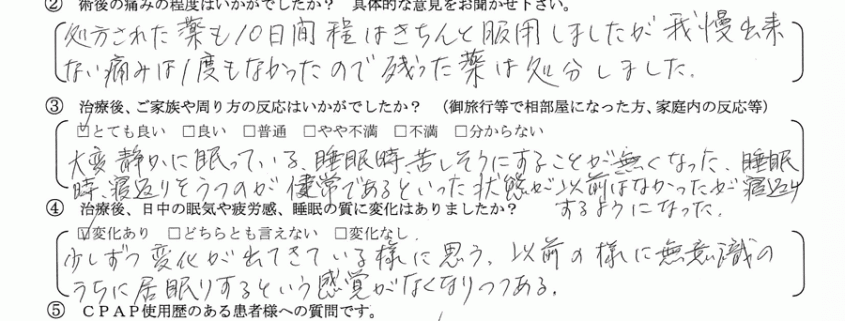 ② 術後の痛みの程度はいかがでしたか？ 具体的な意見をお聞かせ下さい。
処方された薬も10日間程はきちんと服用しましたが我慢出来
ない痛みは1度もなかったので残った薬は処分しました.
③ 治療後、ご家族や周り方の反応はいかがでしたか？ （御旅行等で相部屋になった方、家庭内の反応等）
☑とても良い □良い □普通 □やや不満 □不満 □分からない
大変静かに眠っている、睡眠時、苦しそうにすることが無くなった、睡眠
時、寝返りをうつのが 常であるといった状態が以前はなかったが寝返り
するようになった.
④ 治療後、日中の眠気や疲労感、睡眠の質に変化はありましたか？
☑変化あり □どちらとも言えない □変化なし
少しずつ変化が出てきている様に思う、以前の様に無意識の
うちに居眠りするという感覚がなくなりつつある.
⑤ ＣＰＡＰ使用歴のある患者様への質問です。